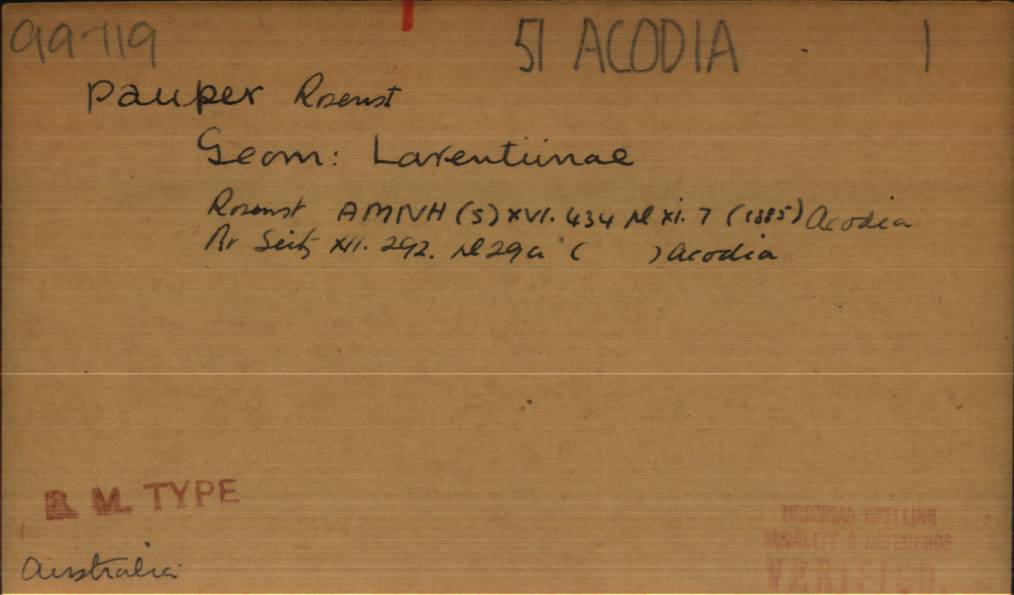 99-119 51 ACODIA 1
pauper Rosenst
Geom: Larentiinae
Rosenst AMNH (5) XVI. 434 Pl XI. 7 (1885) Acodia
Pr Seitz XII. 292. Pl 29a ( ) Acodia
B. M. TYPE
ORIGINAL SPELLING
LOCALITY & REFERENCE
VERIFIED.
Australia